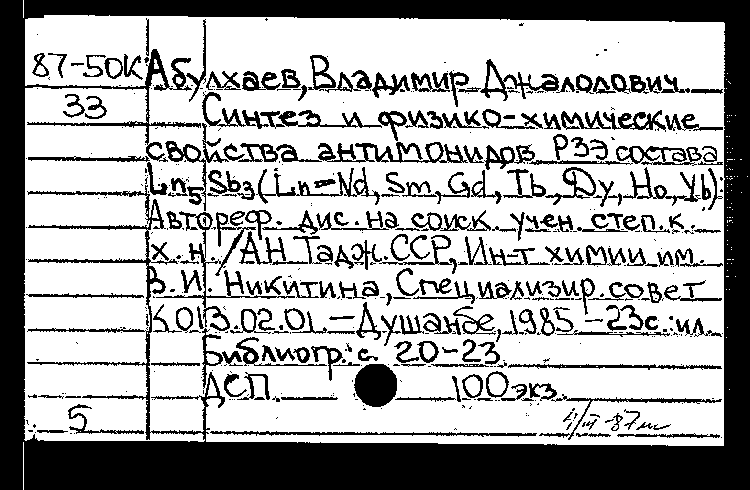 87-50К Абулхаев, Владимир Джалолович
33 Синтез и физико-химические
свойства антимонидов РЗЭ состава
Ln5Sb3 (Ln=Nd, Sm, Gd, Tb, Dy, Ho, Yb):
Автореф. дис. на соиск. учен. степ. к.
х.н. /АН Тадж. ССР, Ин-т химии им.
В.И. Никитина, Специализир. совет
К 013.02.01. — Душанбе, 1985 — 23с.: ил.
Библиогр.: с. 20-23
ДСП 100 экз.
5